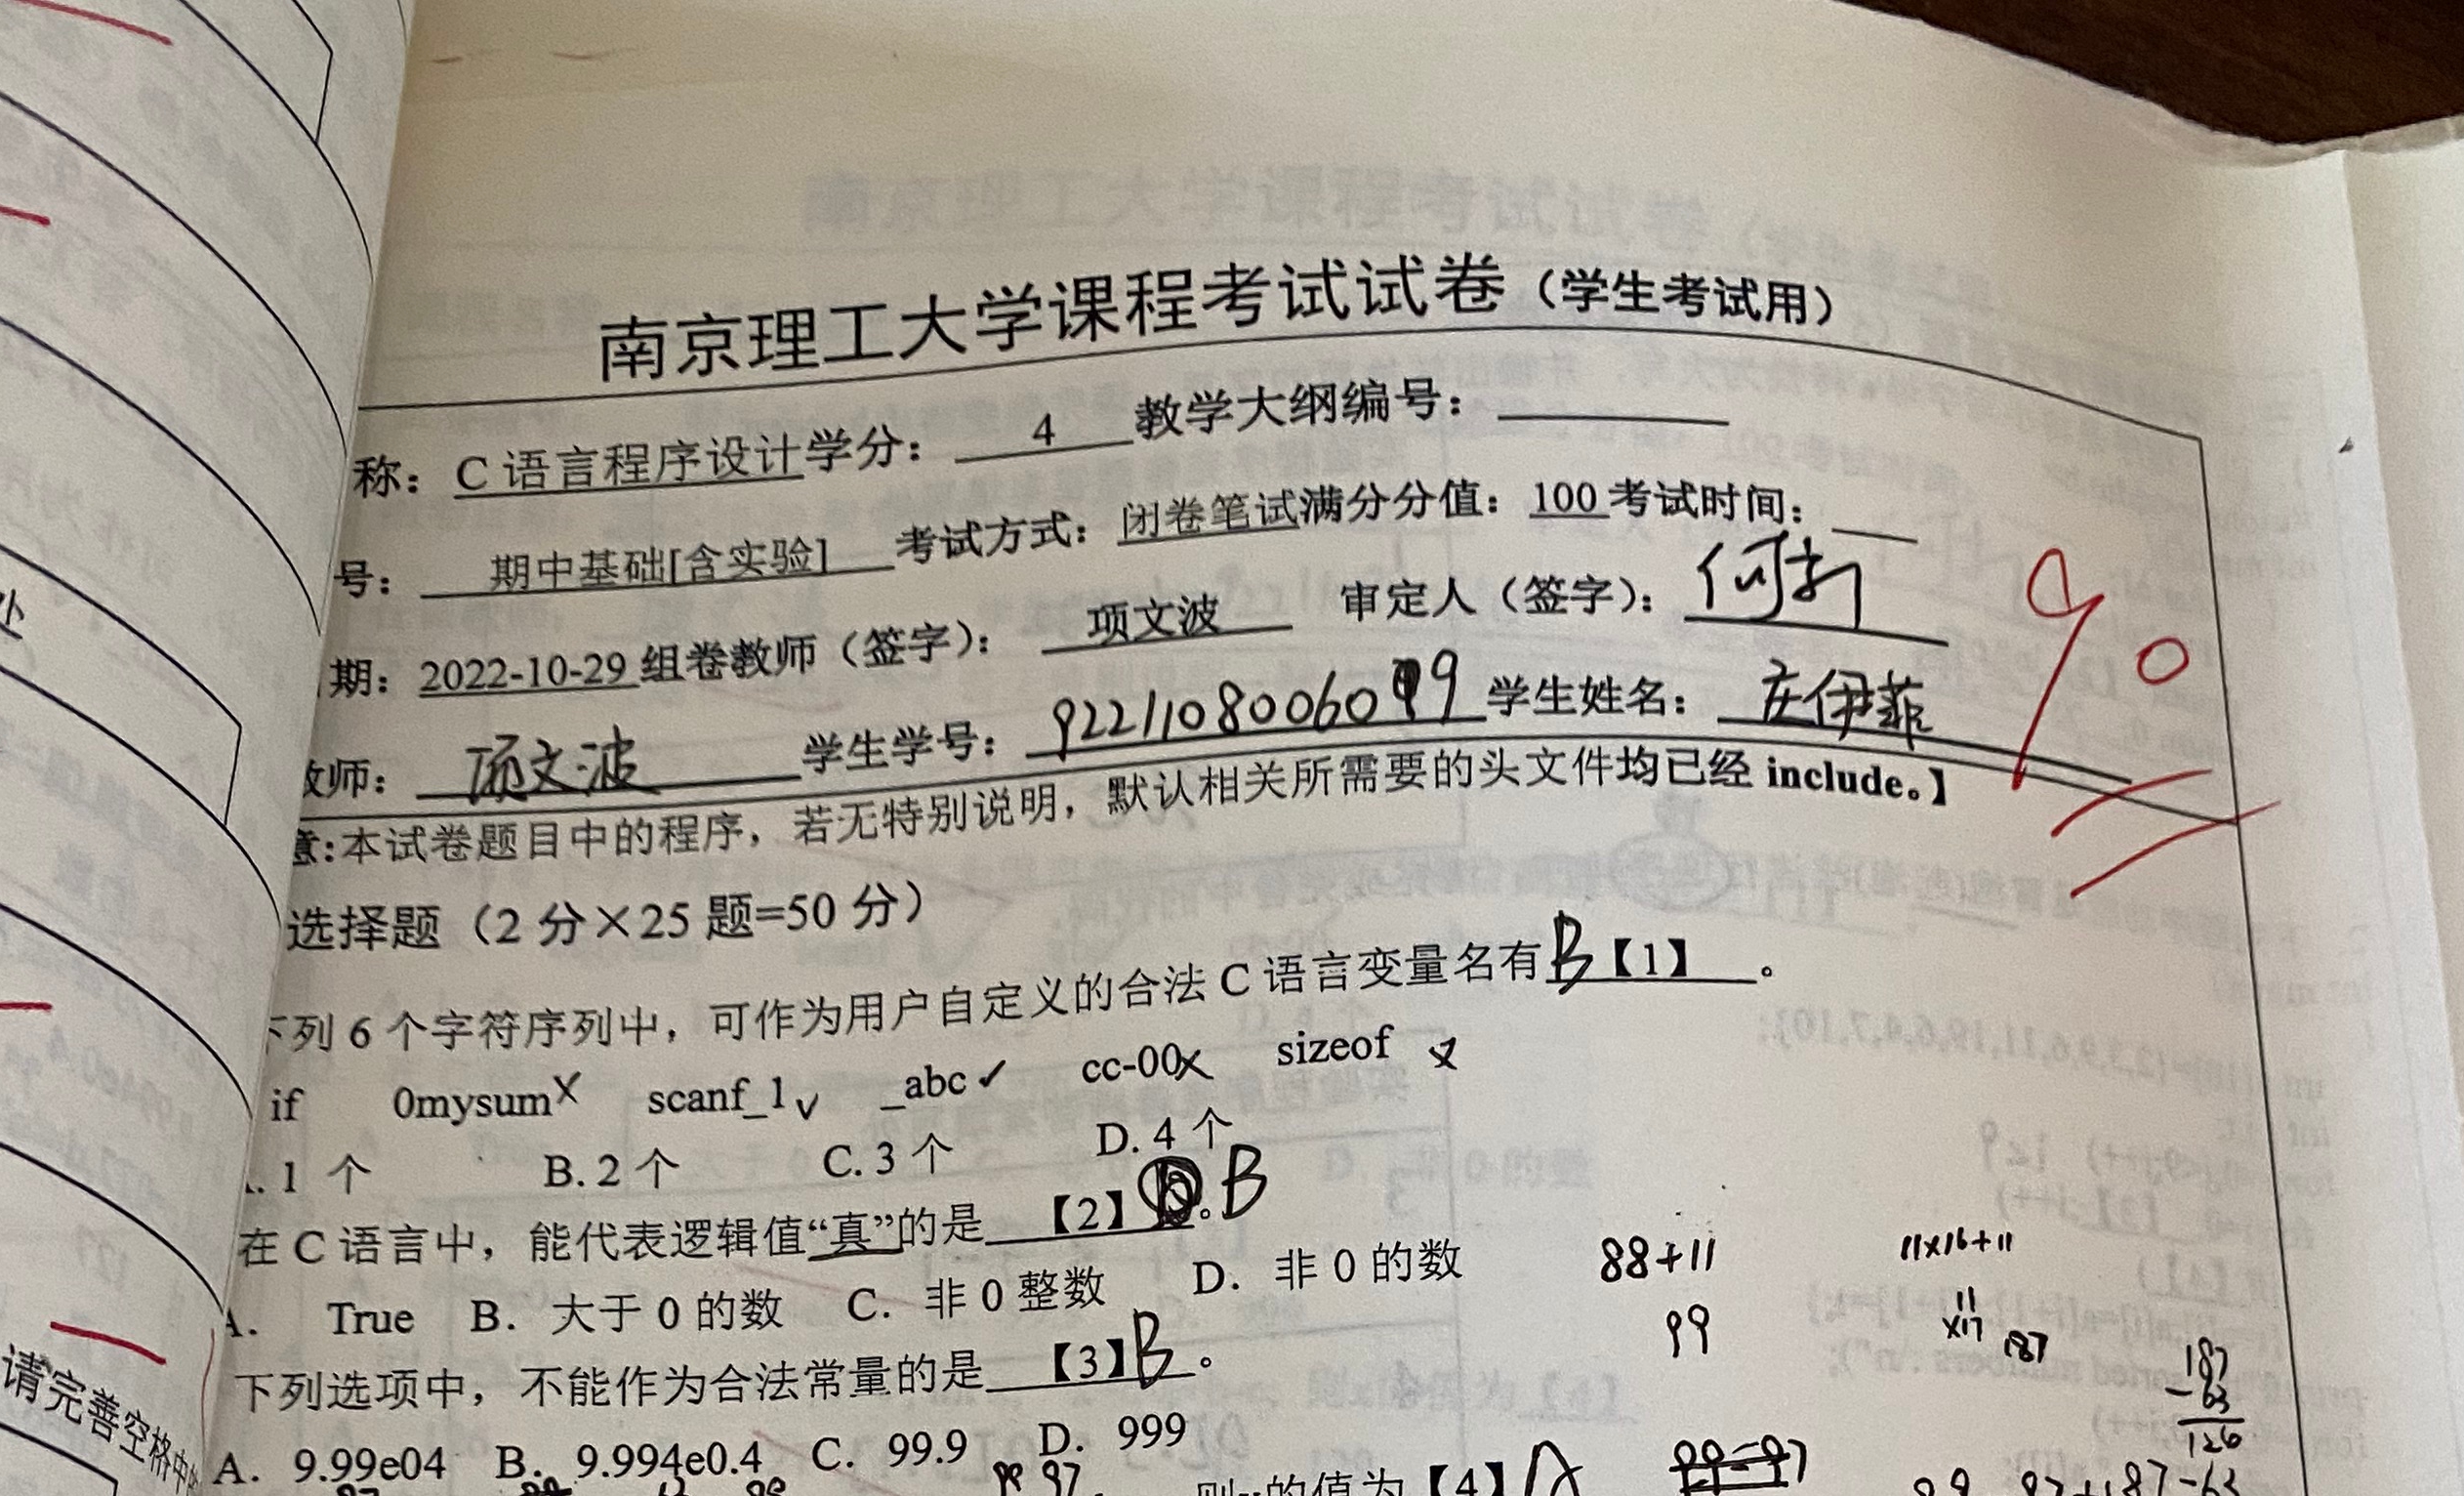 南京理工大学课程考试试卷（学生考试用）
称：C 语言程序设计学分： 4 教学大纲编号：
号： 期中基础[含实验] 考试方式：闭卷笔试满分分值：100 考试时间：
期：2022-10-29 组卷教师（签字）： 项文波 审定人（签字）：何新
教师： 项文波 学生学号：9221108006099 学生姓名：庄伊菲
90
意:本试卷题目中的程序，若无特别说明，默认相关所需要的头文件均已经 include。】
选择题（2 分×25 题=50 分）
下列 6 个字符序列中，可作为用户自定义的合法 C 语言变量名有 B【1】 。
if 0mysum× scanf_1✓ _abc✓ cc-00× sizeof ×
. 1 个 B. 2 个 C. 3 个 D. 4 个
在 C 语言中，能代表逻辑值“真”的是 【2】 。B
A. True B. 大于 0 的数 C. 非 0 整数 D. 非 0 的数
88+11
99
11×16+11
11
×17 187
187
-63
126
下列选项中，不能作为合法常量的是 【3】B 。
A. 9.99e04 B. 9.994e0.4 C. 99.9 D. 999
的值为【4】A
请完善空格中
处